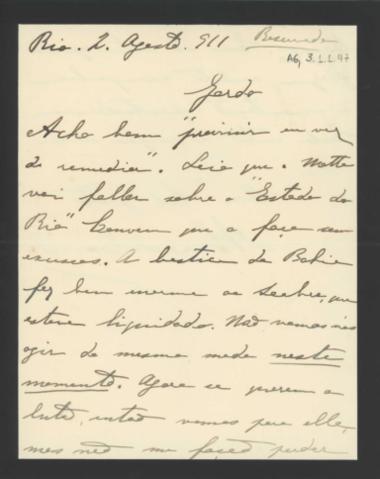 Rio. 2. Agosto. 911
Reservada
A6, 3.1.1.47
Gordo
Acho bem "prevenir em vez
de remediar". Leio que o Motta
vai fallar sobre o "Estado do
Rio" Convem que o faça sem
excessos. A besteira da Bahia
fez bem enorme ao Seabra, que
esteve liquidado. Não vamos nós
agir do mesmo modo neste
momento. Agora se querem a
luta, então vamos para ella,
mas não me façam perder